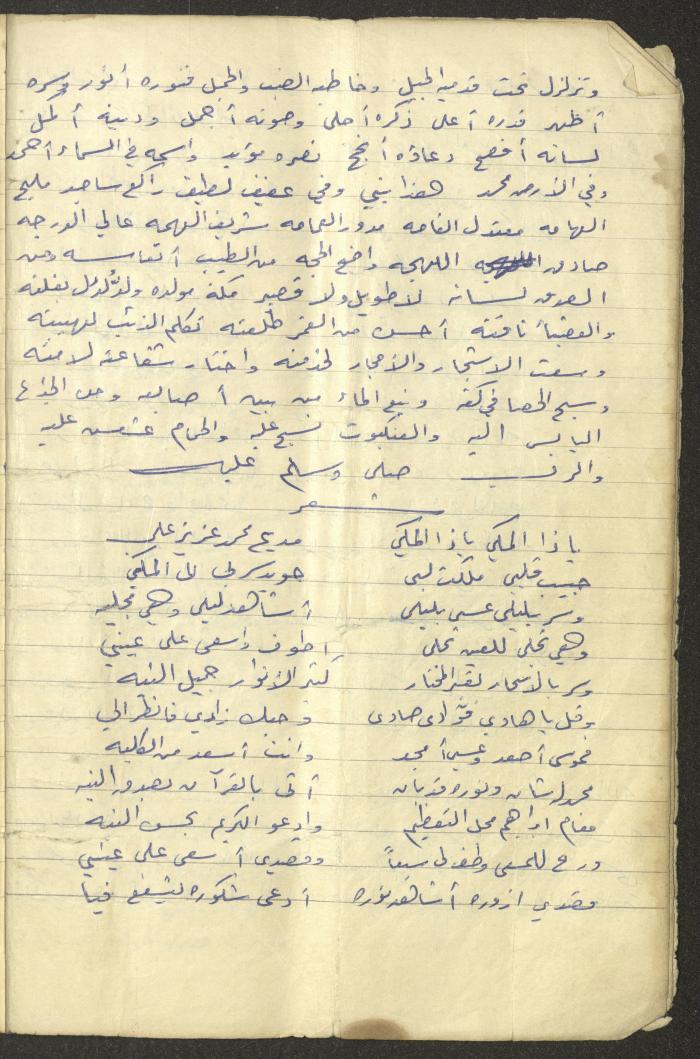 وتزلزل تحت قدميه الجبل وخاطبه الضب والجمل فنوره أنور وسره
أظهر قدره أعلى ذكره أحلى وصوته أجمل ودينه أكمل
لسانه أفصح دعاؤه أنجح نصره مؤيد واسمه في السماء أحمد
وفي الأرض محمد هذا نبي وفي عفيف لطيف راكع ساجد مليح
الهامه معتدل القامه مدور العمامه شريف الهمه عالي الدرجه
صادق اللهجه واضح الحجه من الطيب أنفاسه ومن
الصدق لسانه لا طويل ولا قصير مكة مولده والدلدل بغلته
والعضبأ ناقته أحسن من القمر طلعته تكلم الذئب لهيبته
وسعت الاشجار والأحجار لخدمته واختار شفاعته لامته
وسبح الحصا في كفه ونبع الماء من بين أصابعه وحن الجذع
اليابس اليه والعنكبوت نسج عليه والحمام عشعش عليه
والرب صلى وسلم عليه
شعر
يا ذا المكي يا ذا المكي مديح محمد عزيز علي
حبيب قلبي ملكت لبي جويد سر بي الى المكي
وسر بليلى عسى بليلى أشاهد ليلى وهي مجليه
وهي تجلى للعين تحلى اطوف واسعى على عيني
وسر بالاسحار لقبر المختار كثير الأنوار جميل النيه
وقل يا هادي فؤادي صادى وحبك زادي فانظر الي
فموسى أحمد وعيسى أمجد وانت أسعد من الكليه
محمد له شان ونوره قد بان أتى بالقرآن بصدق النيه
مقام ابراهيم محل التعظيم وادعو الكريم بحسن النيه
ورح للمسعى وطف لي سبعاً وقصدي أسعى على عيني
قصدي ازوره أشاهد نوره أدعى شكوره ليشفع فيا